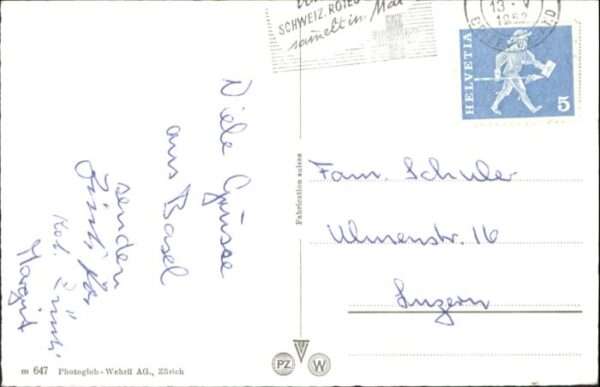 SCHWEIZ. ROTES
sammelt im Mai
13 - V
HELVETIA
5
Viele Grüsse
aus Basel
senden
Margrit
Fabrication suisse
Fam. Schuler
Ulmenstr. 16
Luzern
PZ W
m 647 Photoglob-Wehrli AG., Zürich